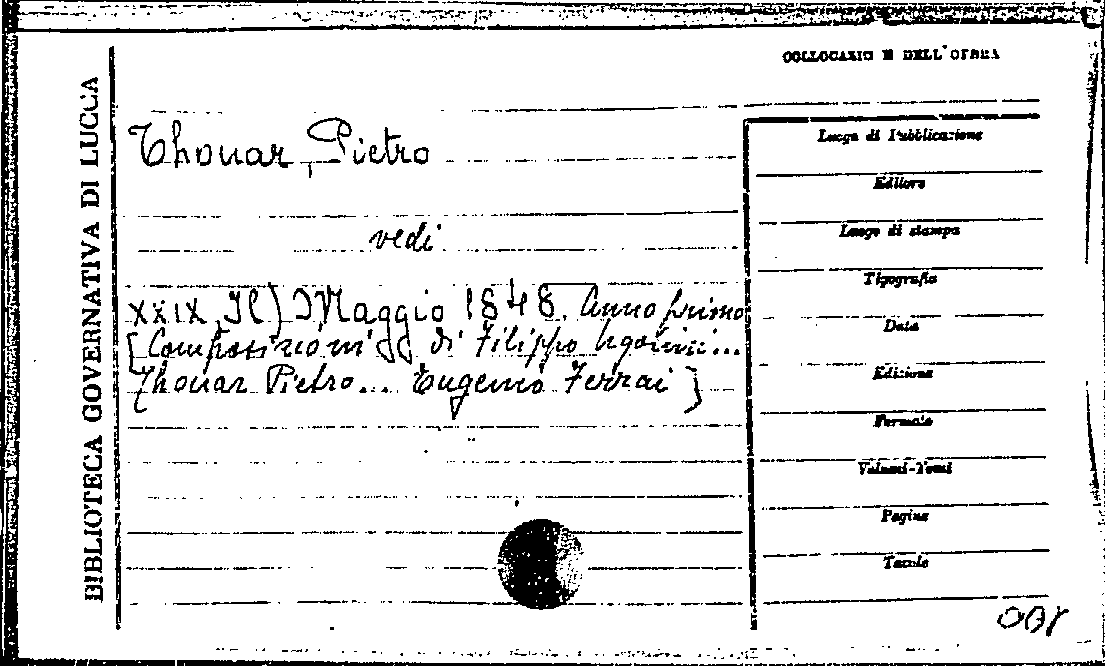 BIBLIOTECA GOVERNATIVA DI LUCCA
COLLOCAZIONE DELL'OPERA
Thouar, Pietro
vedi
XXIX, Il) Maggio 1848. Anno primo
[Composizioni di Filippo Ugolini...
Thouar Pietro... Eugenio Ferrai]
Luogo di Pubblicazione
Editore
Luogo di stampa
Tipografia
Data
Edizione
Formato
Volumi-Tomi
Pagine
Tavole